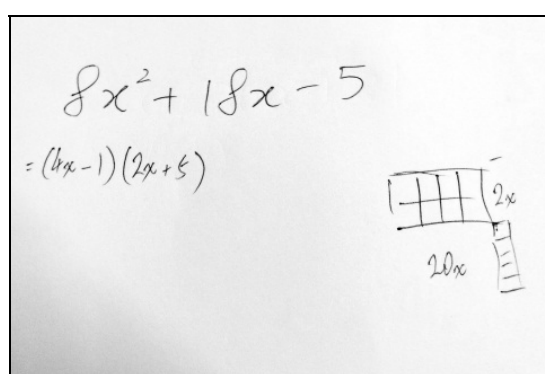 8x² + 18x - 5
= (4x-1)(2x+5)
2x
20x